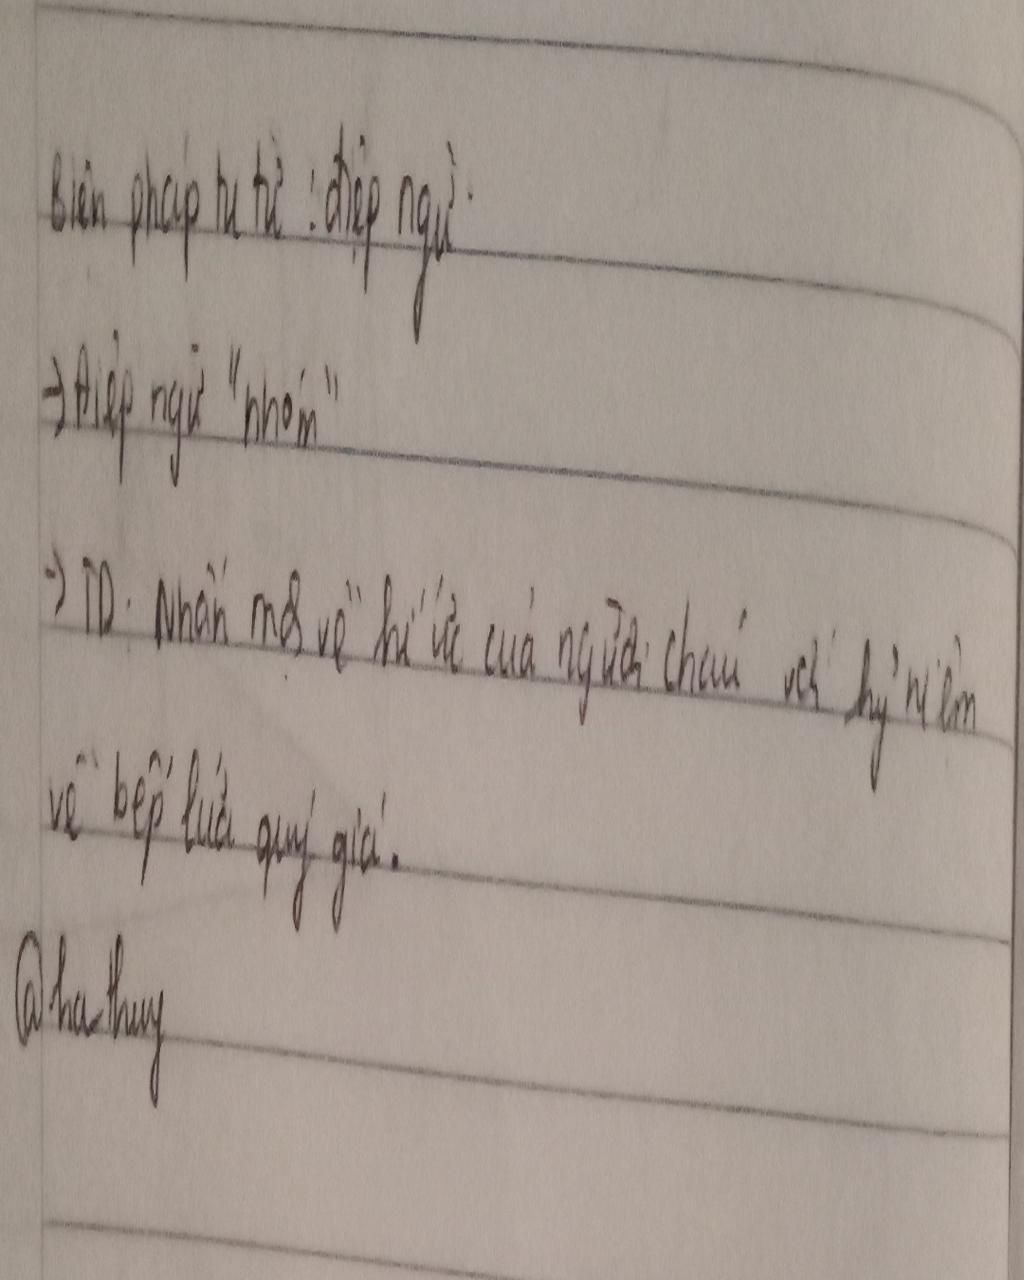 Biện pháp tu từ : điệp ngữ.
→ Điệp ngữ "nhóm"
→ TD: Nhấn mạ về kí ức của người cháu với kỷ niệm
về bếp lửa quý giá.
@ha_thuy